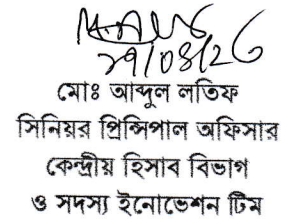 29/08/26
মোঃ আব্দুল লতিফ
সিনিয়র প্রিন্সিপাল অফিসার
কেন্দ্রীয় হিসাব বিভাগ
ও সদস্য ইনোভেশন টিম